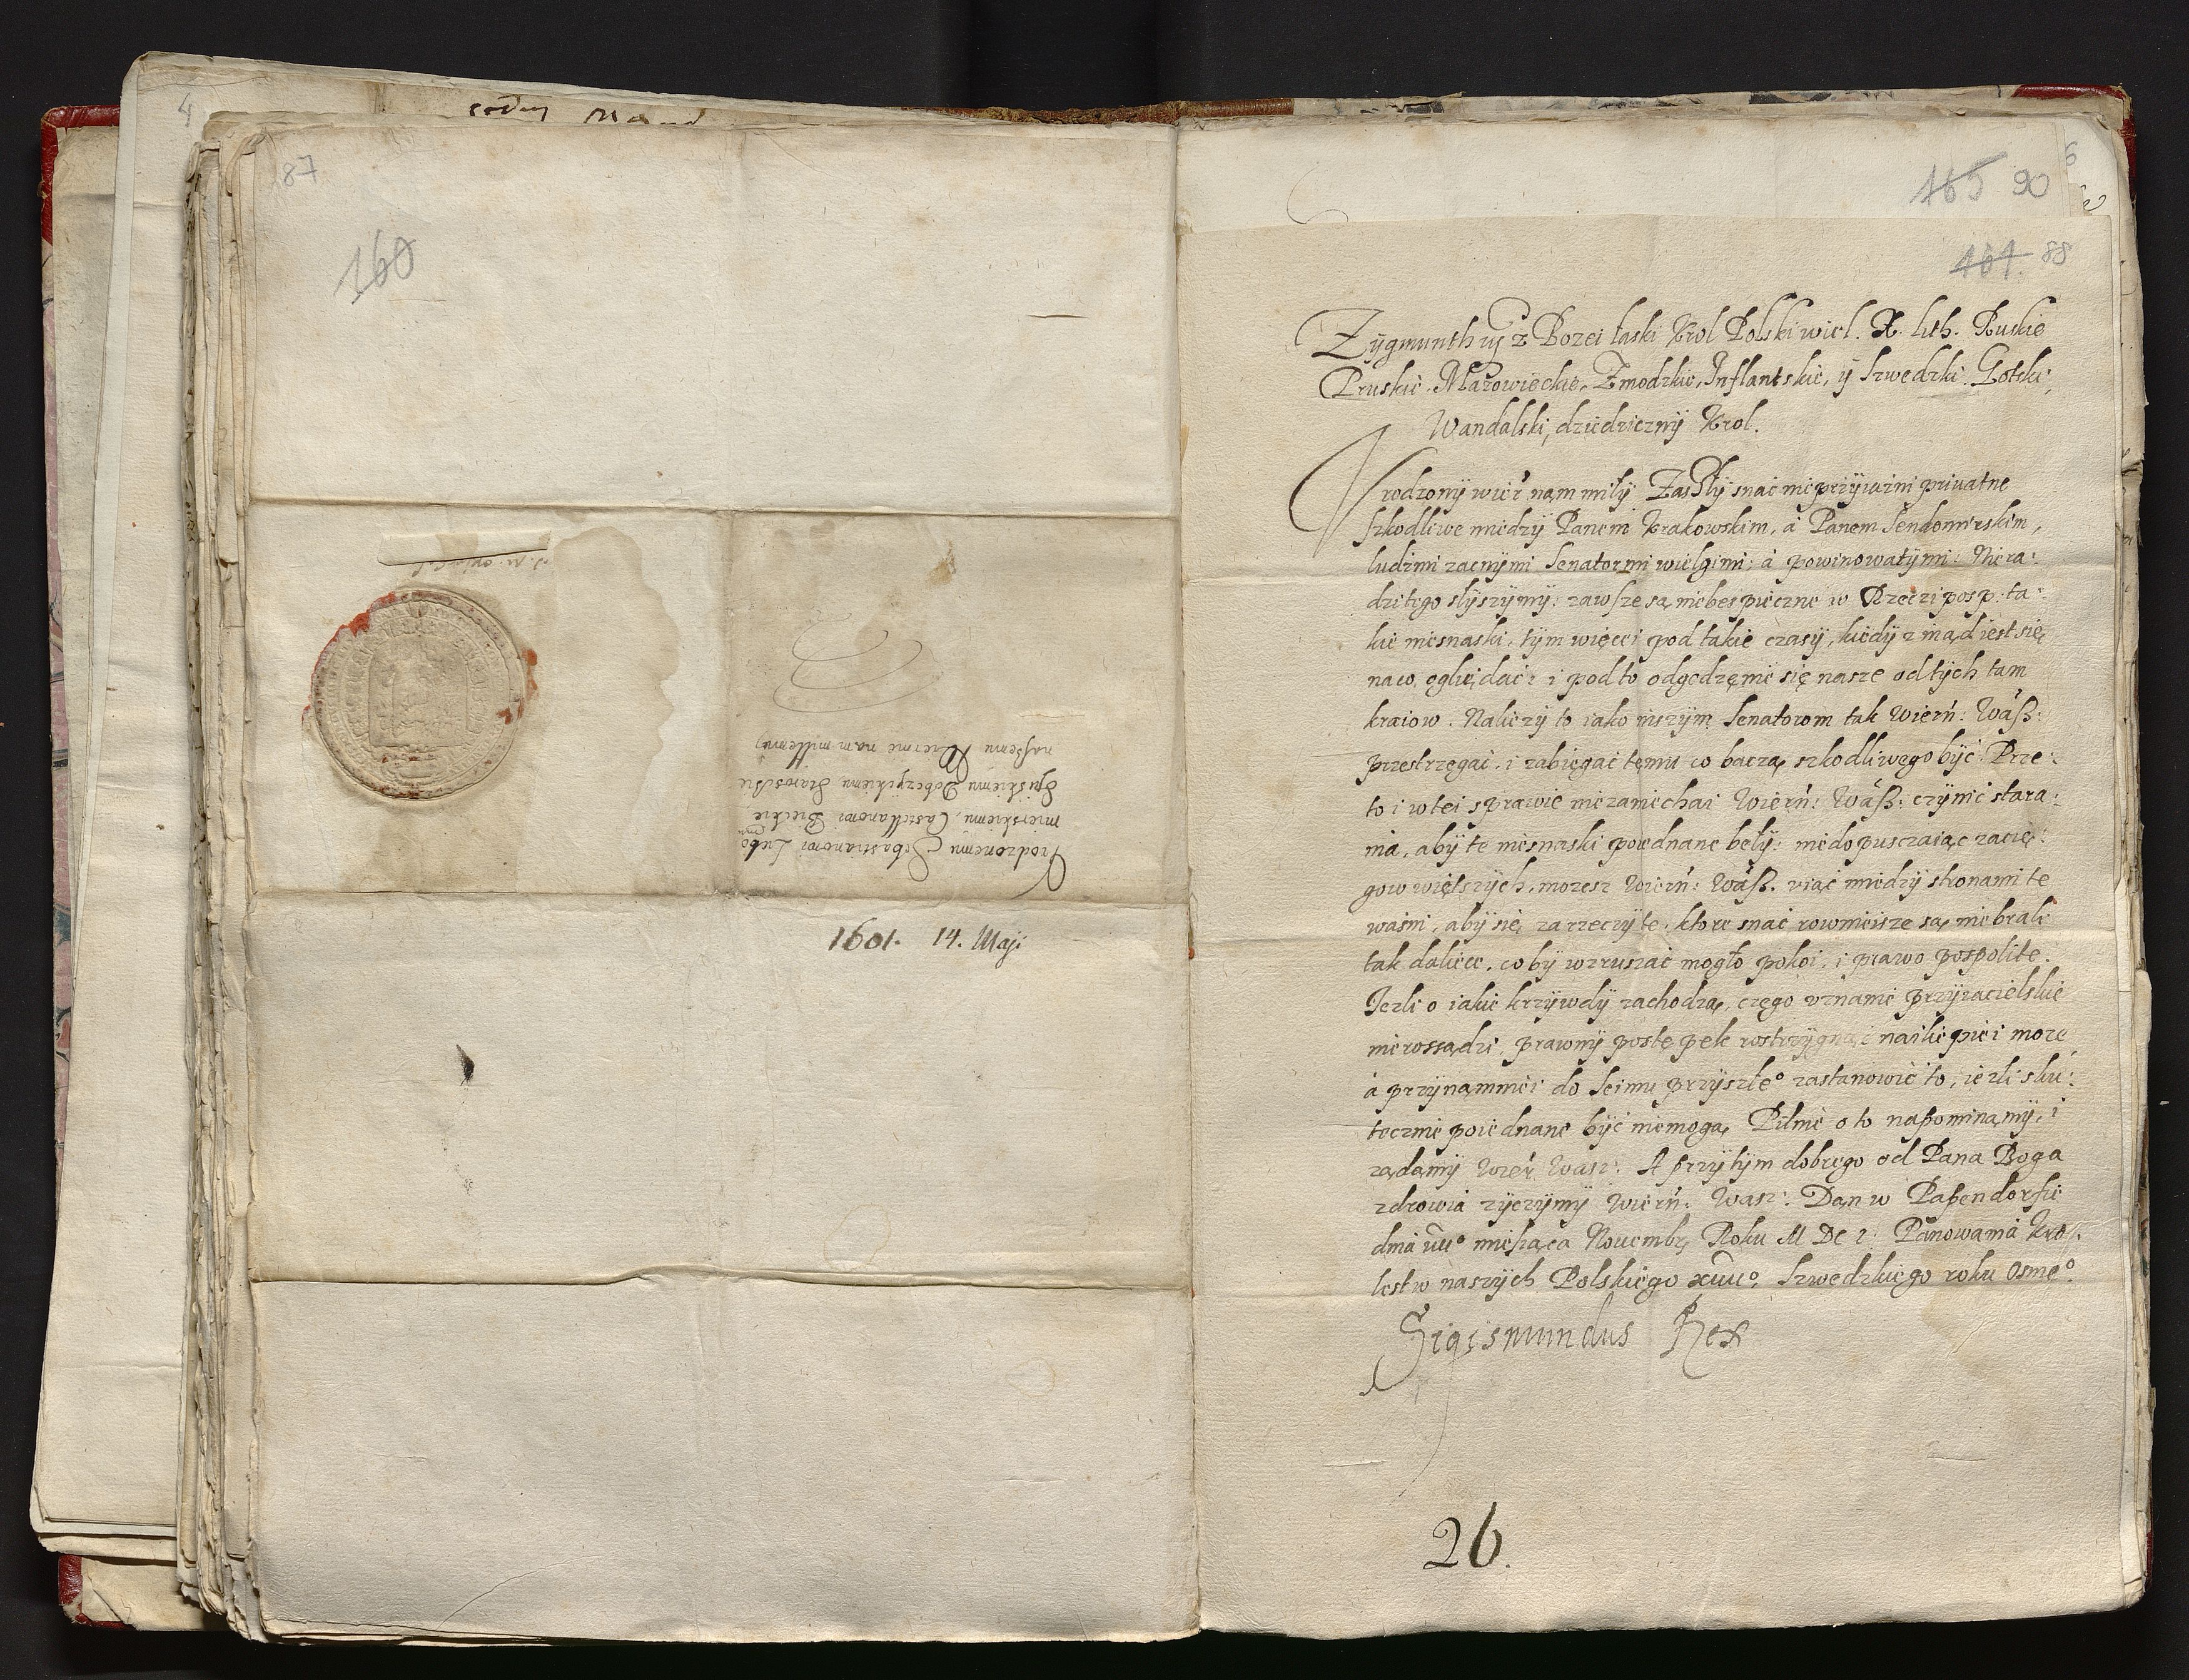 87
160
Vrodzonemu Sebastianowi Lubo
mierskiemu, Castellanowi Bieckie
Dobczyckiemu Staroscie
naszemu Wiernie nam millemu
1601. 14. Maji
165 90
161. 88
Zygmunth iij z Bozei łaski Krol Polski wiel. X. lith. Ruskie
Pruskie. Mazowieckie, Zmodzkie, Inflantskie, ÿ Szwedzki. Gotski,
Wandalski, dziedzicznÿ Krol.
Vrodzonÿ wier nam miłÿ Zaszłÿ snać nieprzÿiazni priuatne
szkodliwe międzÿ Panem Krakowskim, á Panem Sendomirskim,
ludzmi zacnÿmi Senatormi wielgimi; á powinowatÿmi: Niera:
dzi tego słÿszÿmÿ: zawsze są niebespieczne w Rzeczi posp: ta:
kie niesnaski, tÿm więcei pod takie czasÿ, kiedÿ z inąd iest się
na co oględać: i pod to odgodzęnie się nasze od tÿch tam
kraiow. Nalezÿ to iako inszÿm Senatorom tak Wiern: Wász:
przestrzęgać, i zabiegać tęmu co baczą szkodliwego bÿć: Prze:
to i w tei sprawie niezaniechai Wiern: Wász: czÿnić stara:
nia, abÿ te niesnaski poiednane bełÿ: niedopusczaiąc zacię:
gow więtszÿch, mozesz Wiern: Wász. viąć międzÿ stronami te
waśni, abÿ się za rzeczÿ te, ktore snać rownieisze są, nie brali
tak daliece, co bÿ wzruszać mogło pokoi, i prawo pospolite.
Iezli o iakie krzÿwdÿ zachodzą, czego vznanie przÿiacielskie
nierossądzi, prawnÿ postępek rostrzÿgnąć nailiepiei moze
á przÿnamniei do Seimu przÿszłe° zastanowić to, iezli sku:
tecznie poiednane bÿć niemogą. Pilnie o to napominamÿ, i
ządamÿ Wier Wasz: A przÿtÿm dobrego od Pana Boga
zdrowia zÿczÿmÿ Wiern: Wasz: Dan w Papendorfie
dnia miesiąca Nouembr, Roku M DC i: Panowania Kro:
lestw naszÿch Polskiego xiiii°, Szwedzkiego roku osme°.
Sigismundus Rex
26.